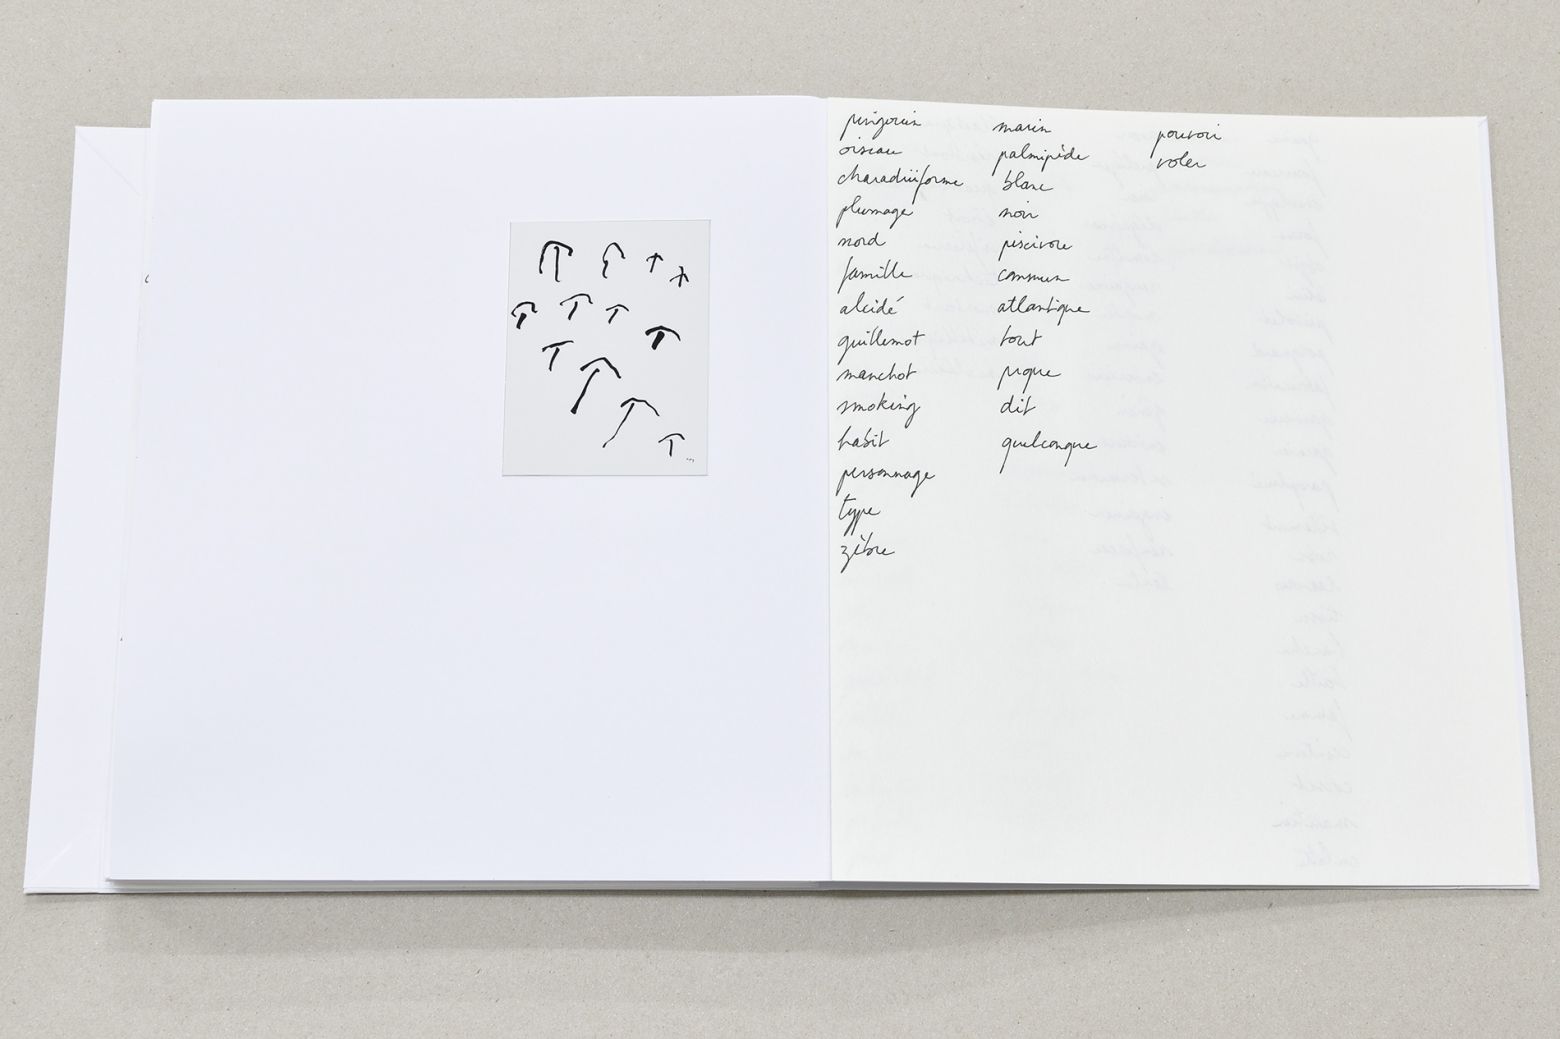 pingouin
oiseau
charadriiforme
plumage
nord
famille
alcidé
guillemot
manchot
smoking
habit
personnage
type
zèbre
marin
palmipède
blanc
noir
piscivore
commun
atlantique
tout
pique
dit
quelconque
pouvoir
voler